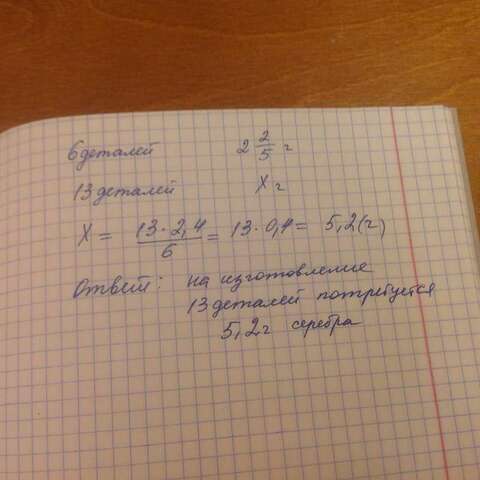 6 деталей 2 2/5 г
13 деталей X г
X = 13 · 2,4 / 6 = 13 · 0,4 = 5,2 (г)
Ответ: на изготовление
13 деталей потребуется
5,2 г серебра